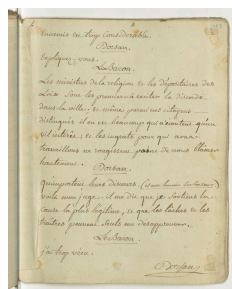 ennemis du trop Considerable.
Dorsan.
Expliquez-vous.
Le Baron.
Les ministres de la religion & les dépositaires des
Loix sont les premiers à exciter la discorde
dans la ville; & même parmi nos citoyens
distingués il en est beaucoup que n'écoutent qu'un
vil intérêt; & les ingrats pour qui nous
travaillons ne rougissent point de nous blâmer
hautement.
Dorsan.
Qu'importent leurs discours
voilà mon juge: il me dit que je soutiens la
cause la plus légitime, & que les lâches & les
traîtres peuvent seuls me désapprouver.
Le Baron.
j'ai trop vécu.
Dorsan